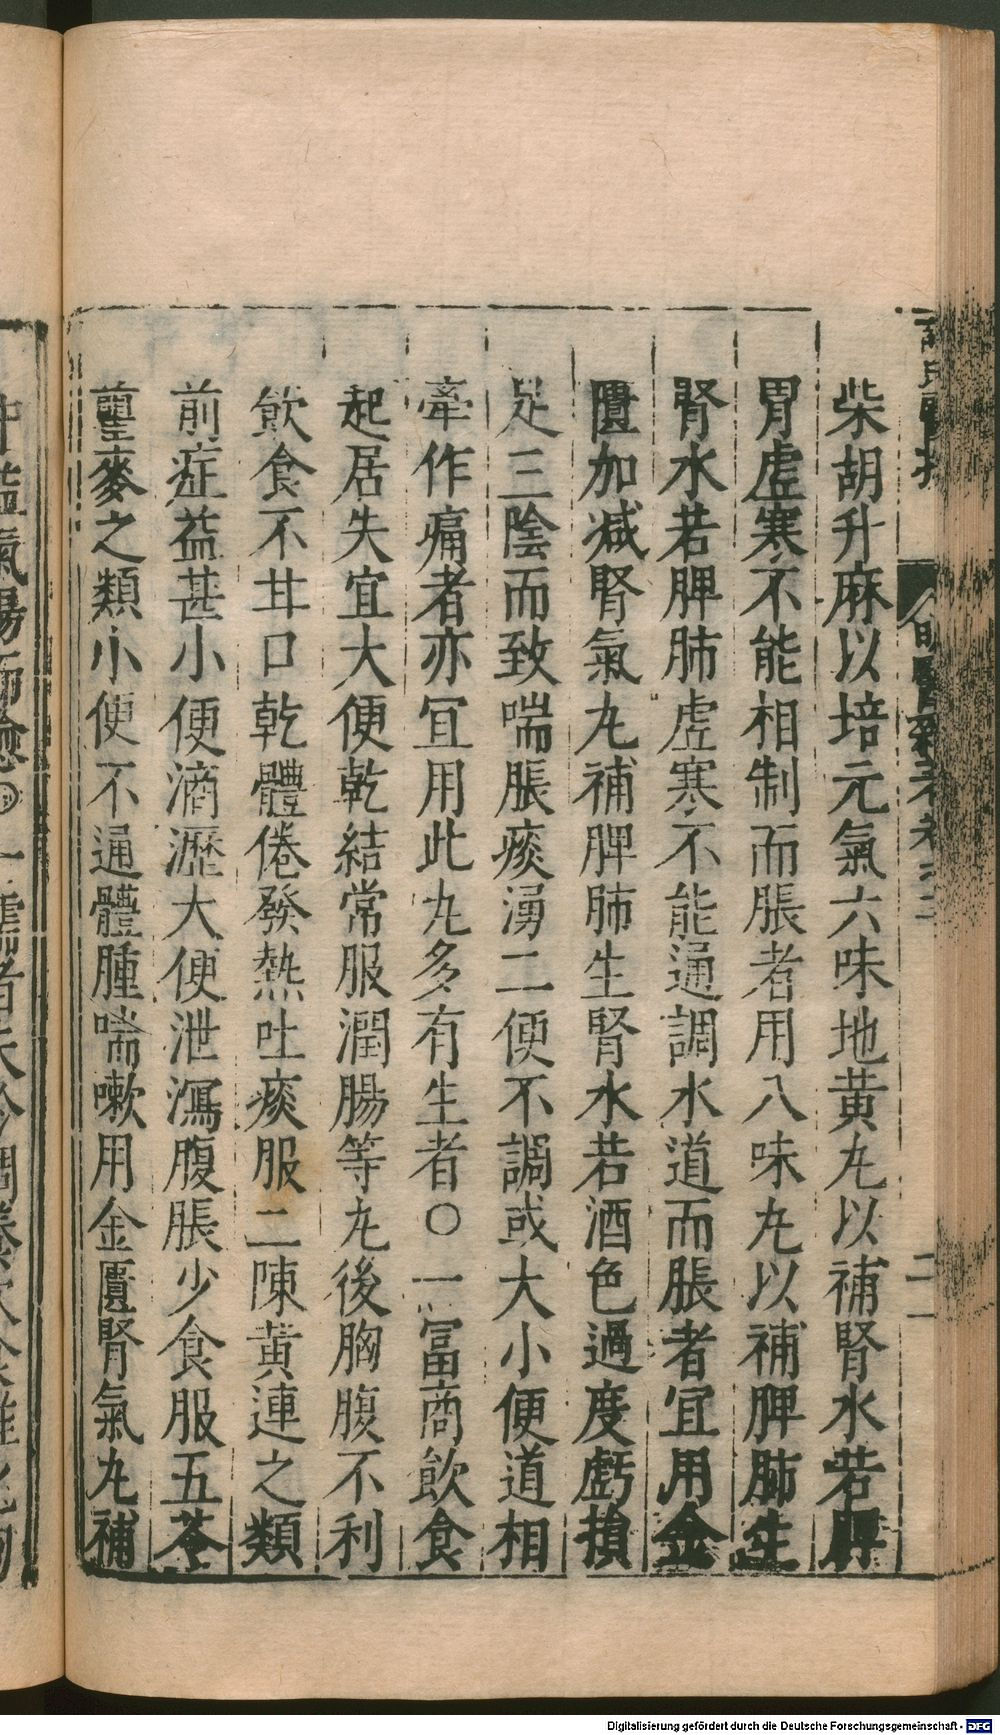 柴胡升麻以培元氣六味地黄九以補腎水若脾
胃虚寒不能相制而脹者用八味九以補脾肺生
腎水若脾肺虚寒不能通調水道而脹者宜用金
匱加减腎氣九補脾肺生腎水若酒色過度虧損
足三陰而致喘脹痰湧二便不調或大小便道相
牽作痛者亦宜用此九多有生者○一富商飲食
起居失宜大便乾結常服潤腸等九後胸腹不利
飲食不甘口乾體倦發熱吐痰服二陳黄連之類
前症益甚小便滴瀝大便泄瀉腹脹少食服五苓
瞿麥之類小便不通體腫喘嗽用金匱腎氣九補
Digitalisierung gefördert durch die Deutsche Forschungsgemeinschaft - DFG